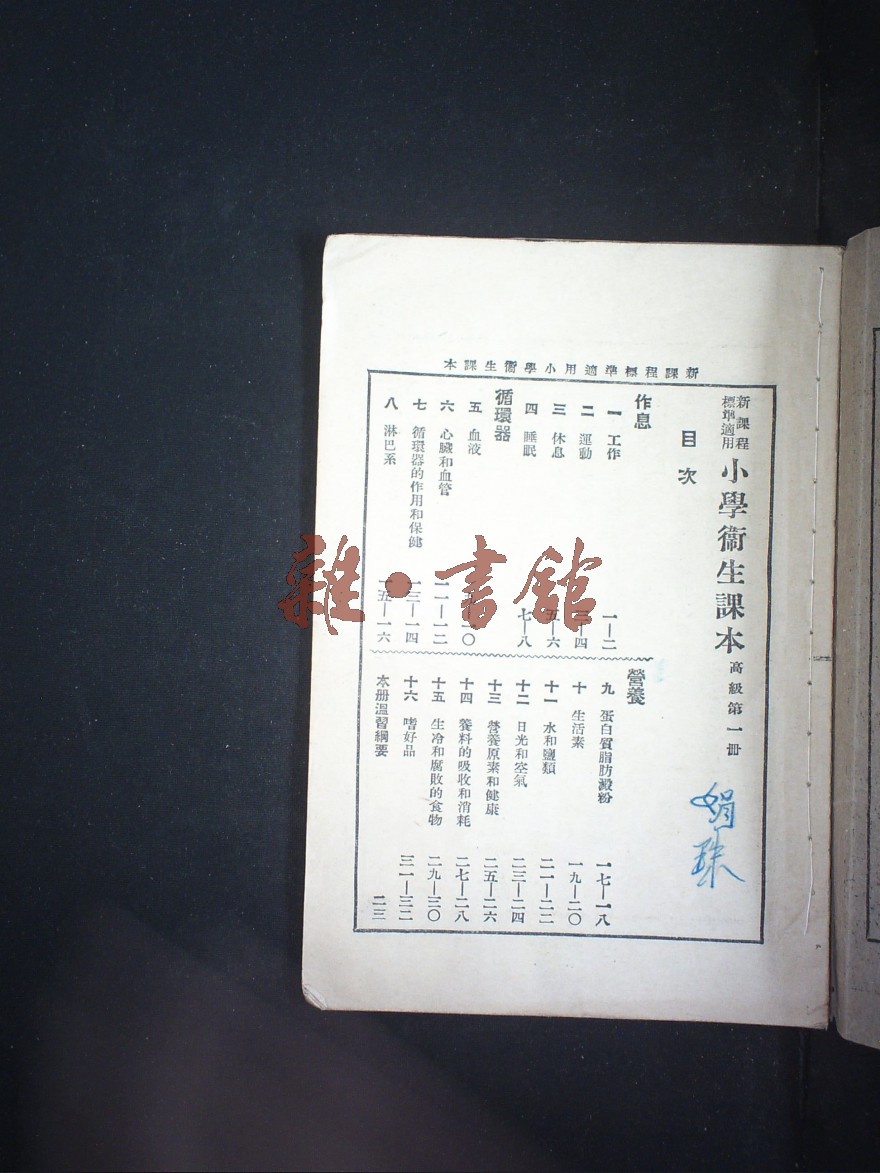 新課程標準適用小學衞生課本
新課程
標準適用
小學衞生課本 高級第一冊
目次
作息
一 工作 一—二
二 運動 三—四
三 休息 五—六
四 睡眠 七—八
循環器
五 血液 一〇
六 心臟和血管 一一—一二
七 循環器的作用和保健 一三—一四
八 淋巴系 一五—一六
營養
九 蛋白質脂肪澱粉 一七—一八
十 生活素 一九—二〇
十一 水和鹽類 二一—二二
十二 日光和空氣 二三—二四
十三 營養原素和健康 二五—二六
十四 養料的吸收和消耗 二七—二八
十五 生冷和腐敗的食物 二九—三〇
十六 嗜好品 三一—三二
本册溫習綱要 二三
娟珠
雜·書館